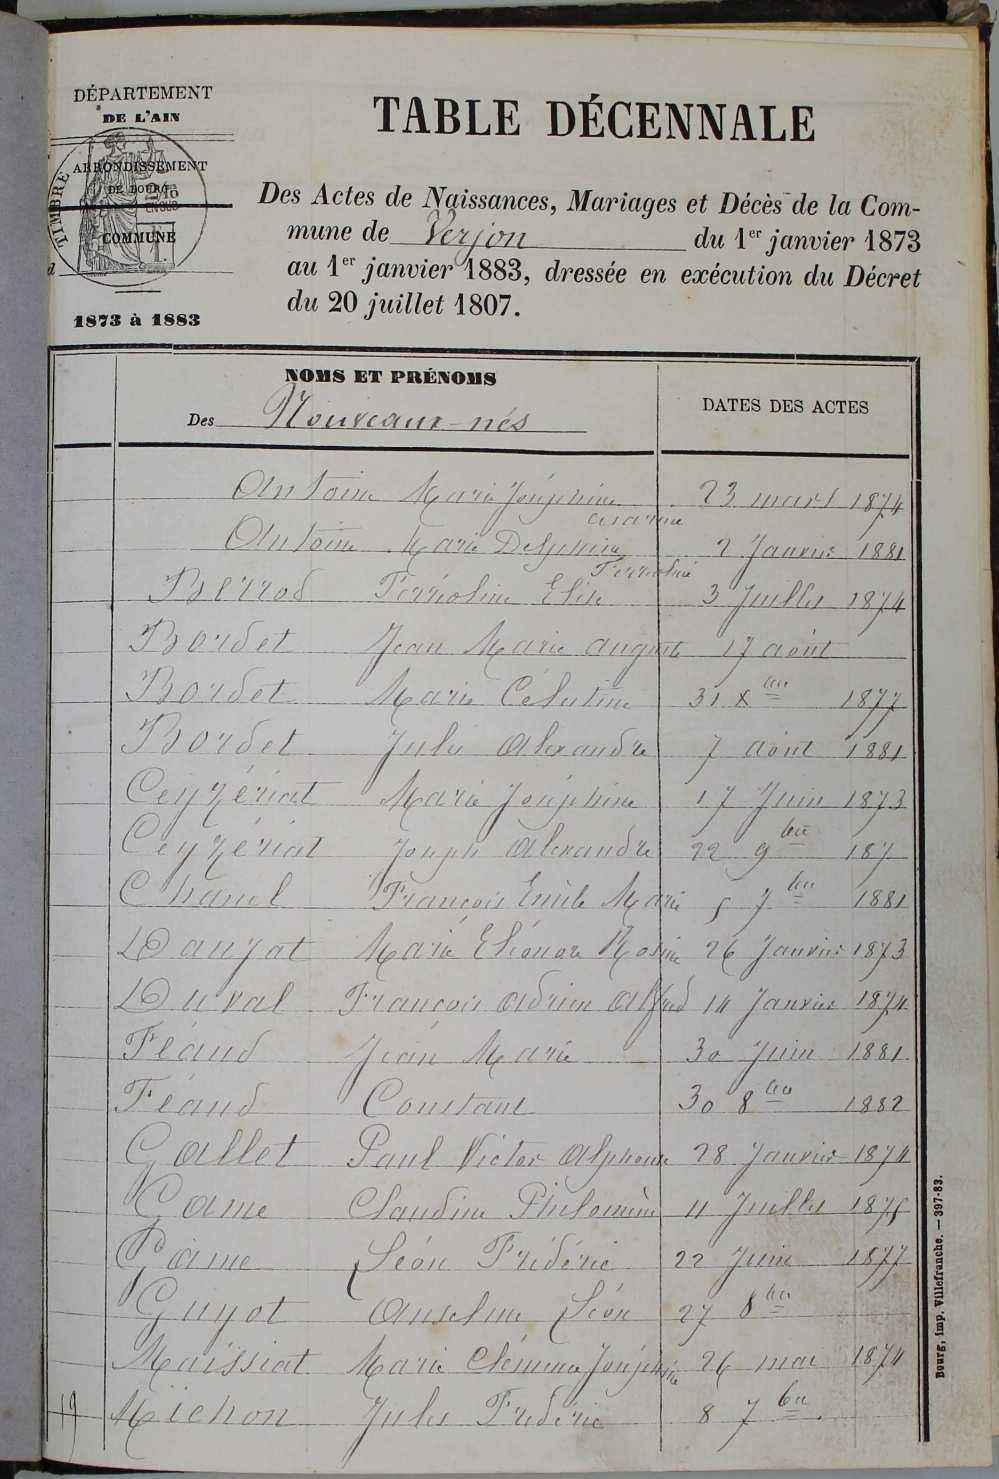 DÉPARTEMENT
DE L'AIN
ARRONDISSEMENT
DE BOURG
TIMBRE
COMMUNE
1873 à 1883
TABLE DÉCENNALE
Des Actes de Naissances, Mariages et Décès de la Com-
mune de Verjon du 1er janvier 1873
au 1er janvier 1883, dressée en exécution du Décret
du 20 juillet 1807.
NOMS ET PRÉNOMS
Des Nouveaux-nés
DATES DES ACTES
Antoine Marie Joséphine 23 mars 1874
Antoine Marie Delphine 2 Janvier 1881
Ferréoline
Berrod Ferréoline Elise 3 Juillet 1874
Bordet Jean Marie auguste 17 août
Bordet Marie Célestine 31 xbre 1877
Bordet Jules Alexandre 7 août 1881
Ceyzériat Marie Joséphine 17 Juin 1873
Ceyzériat Joseph Alexandre 22 9bre 187
Chanel François Emile Marie 5 7bre 1881
Dauzat Marie Eléonore Rosine 26 Janvier 1873
Duval François Adrien Alfred 14 Janvier 1874
Féaud Jean Marie 30 Juin 1881
Féaud Constant 30 8bre 1882
Gallet Paul Victor Alphonse 28 Janvier 1874
Game Claudine Philomène 11 Juillet 1875
Game Léon Frédéric 22 Juin 1877
Guyot Anselme Léon 27 8bre
Maissiat Marie Clémence Joséphine 26 mai 1874
19 Michon Jules Frédéric 8 7bre
Bourg, imp. Villefranche. — 397-83.